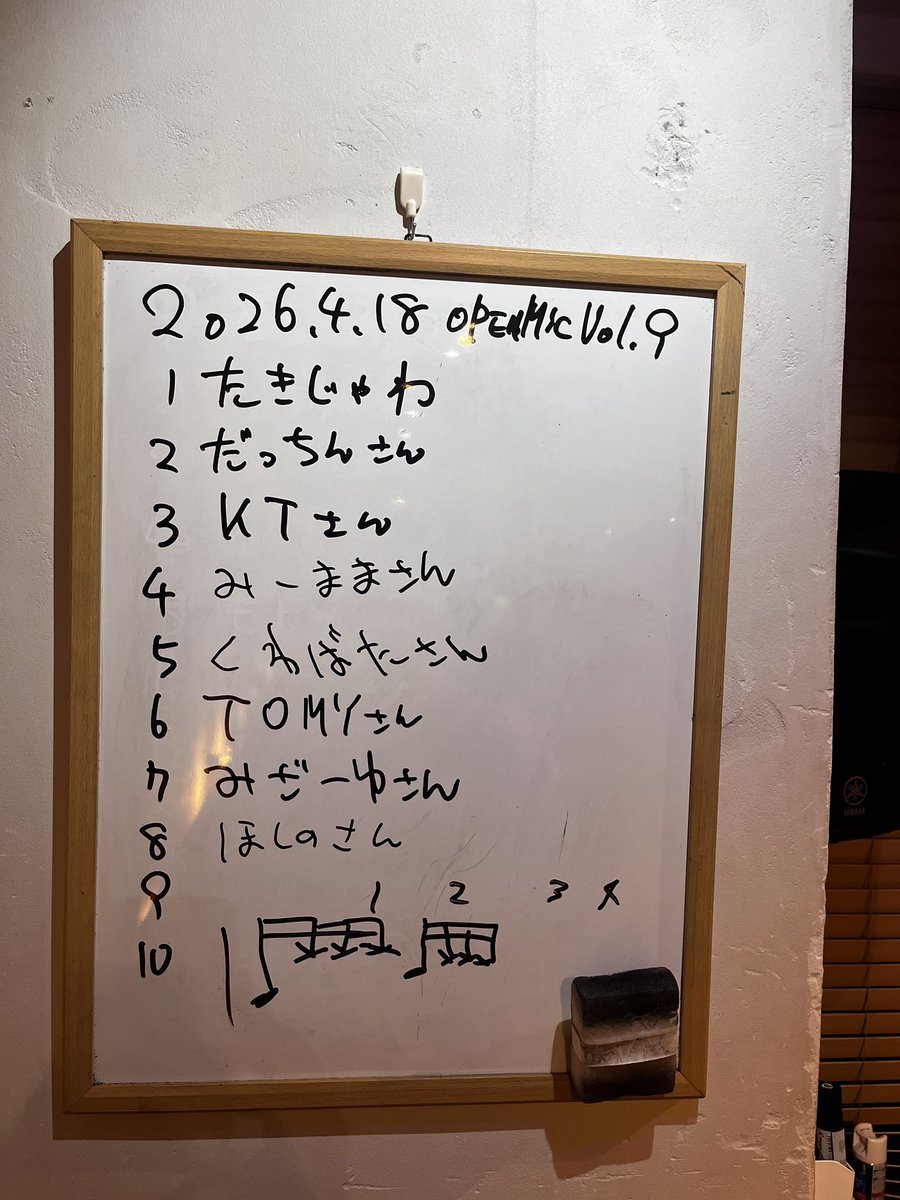 2026.4.18 OPENMIC Vol.9
1 たきじゃわ
2 だっちんさん
3 KTさん
4 みーままさん
5 くわばたさん
6 TOMYさん
7 みざーゆさん
8 ほしのさん
9
1 2 3 4
10
YAMAHA